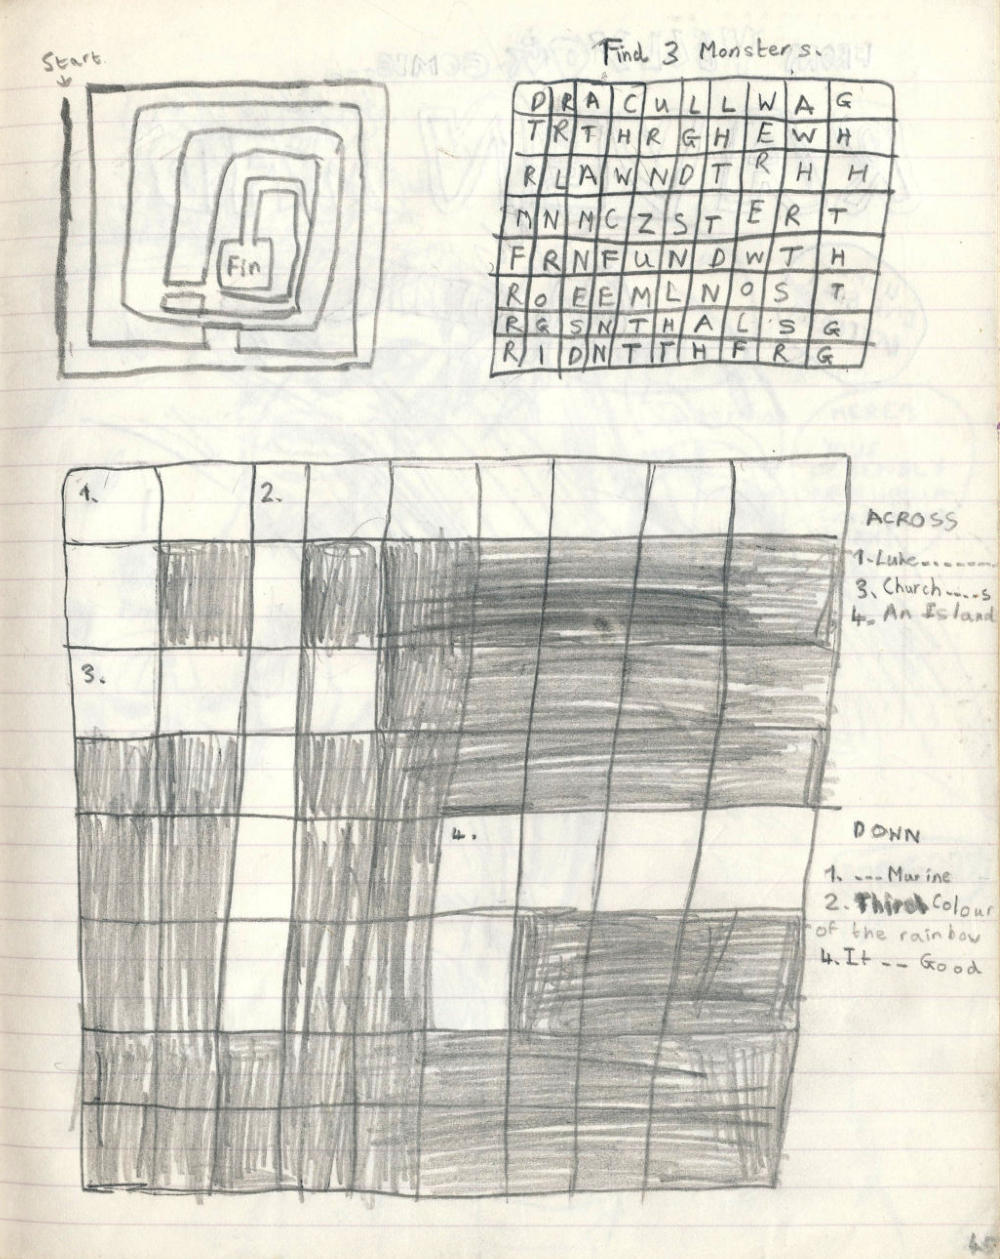 Start.
Find 3 Monsters.
D R A C U L L W A G
T R T H R G H E W H
R L A W N D T R H H
M N M C Z S T E R T
F R N F U N D W T H
R O E E M L N O S T
R G S N T H A L S G
R I D N T T H F R G
Fin
1. 2.
3.
4.
ACROSS
1. Luke........
3. Church....s
4. An Island
DOWN
1. --- Marine
2. Third Colour
of the rainbow
4. It -- Good